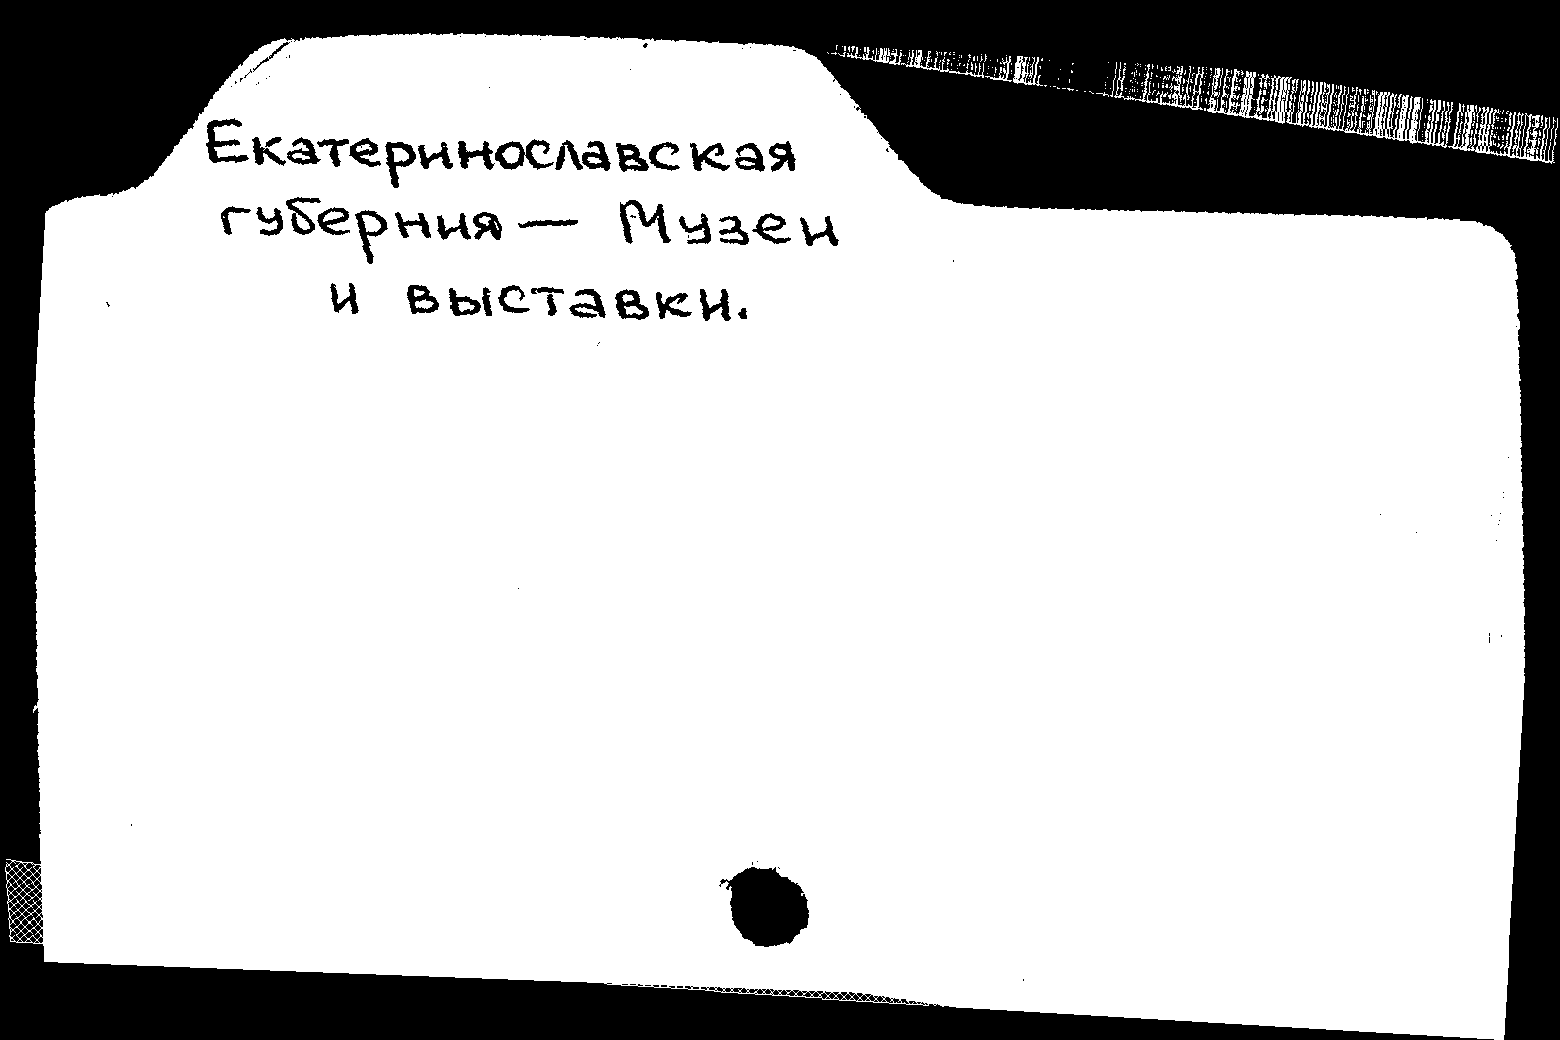 Екатеринославская
губерния — Музеи
и выставки.